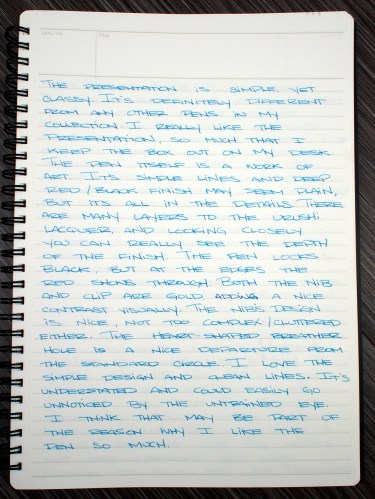 The presentation is simple, yet
classy. It's definitely different
from any other pens in my
collection. I really like the
presentation, so much that I
keep the box out on my desk.
The pen itself is a work of
art. It's simple lines and deep
red/black finish may seem plain,
but its all in the details. There
are many layers to the urushi
lacquer, and looking closely
you can really see the depth
of the finish. The pen looks
black, but at the edges the
red shows through. Both the nib
and clip are gold, adding a nice
contrast visually. The nib's design
is nice, not too complex/cluttered
either. The heart-shaped breather
hole is a nice departure from
the standard circle. I love the
simple design and clean lines. It's
understated and could easily go
unnoticed by the untrained eye.
I think that may be part of
the reason why I like the
pen so much.